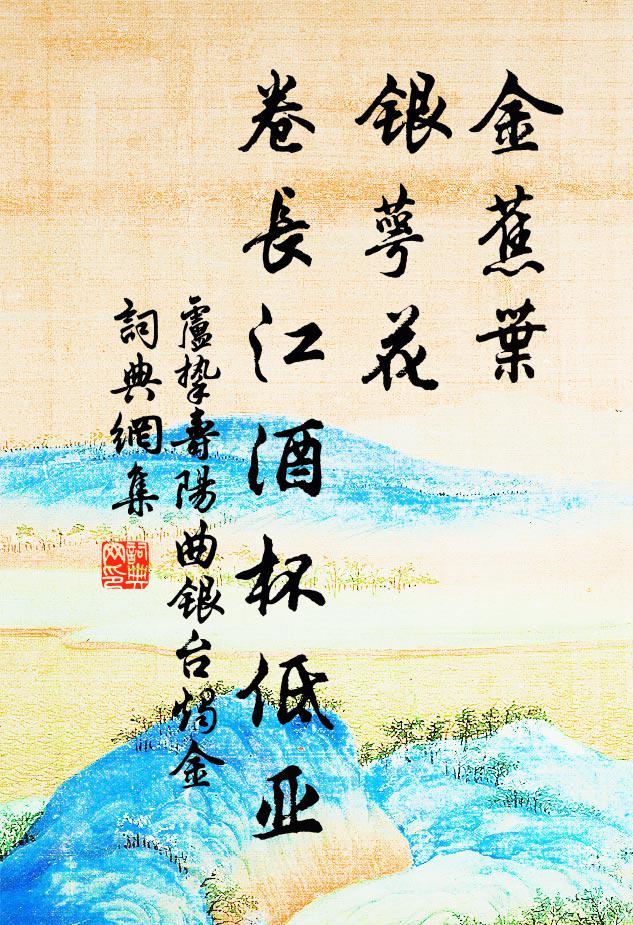 金蕉葉
銀萼花
卷長江酒杯低亚
盧摯壽陽曲銀台燭金
詞典網集
詞典
网印